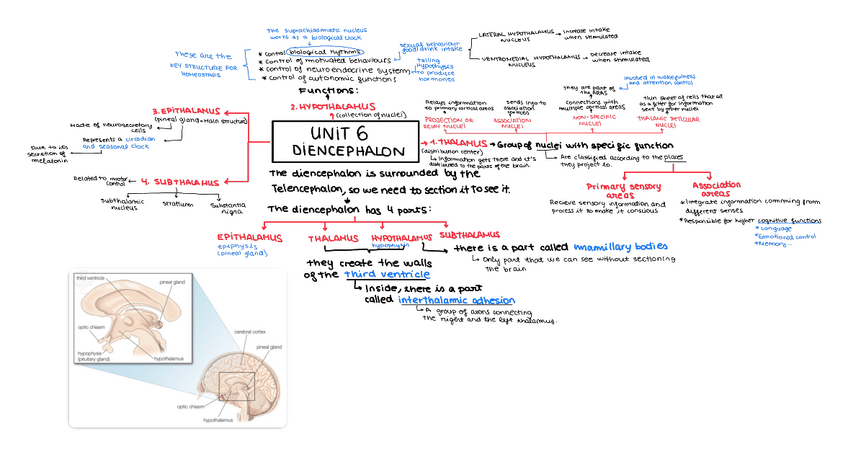 The suprachiasmatic nucleus
works as a biological clock
These are the
KEY STRUCTURE FOR
HOMEOSTASIS
* Control biological rhythms
* Control of motivated behaviours
* Control of neuroendocrine system
* Control of autonomic functions
sexual behaviour
food/drink intake
telling
hypophysis
to produce
hormones
LATERAL HYPOTHALAMUS
NUCLEUS
increase intake
when stimulated
VENTROMEDIAL HYPOTHALAMUS
NUCLEUS
Decrease intake
when stimulated
Functions:
2. HYPOTHALAMUS
(collection of nuclei)
3. EPITHALAMUS
(pineal gland = main structure)
Made of neurosecretory
cells
Represents a circadian
and seasonal clock
Due to its
secretion of
melatonin
4. SUBTHALAMUS
Related to motor
control
Subthalamic
nucleus
Striatum
Substantia
nigra
UNIT 6
DIENCEPHALON
1. THALAMUS
(distribution center)
Group of nuclei with specific function
Information gets there and it's
distributed to the parts of the brain.
Are classified according to the places
they project to.
Relays information
to primary cortical areas
PROJECTION OR
RELAY NUCLEI
sends info to
association
cortices
ASSOCIATION
NUCLEI
they are part of
the ARAS
involved in wakefulness
and attention control
connections with
multiple cortical areas
NON-SPECIFIC
NUCLEI
Thin sheet of cells that act
as a filter for information
sent by other nuclei
THALAMIC RETICULAR
NUCLEI
Primary sensory
areas
Recieve sensory information and
process it to make it conscious
Association
areas
* Integrate information comming from
different senses
* Responsible for higher cognitive functions
* Language
* Emotional control
* Memory...
The diencephalon is surrounded by the
Telencephalon, so we need to section it to see it.
The diencephalon has 4 parts:
EPITHALAMUS
Epiphysis
(pineal gland)
THALAMUS
HYPOTHALAMUS
hypophysis
SUBTHALAMUS
there is a part called mamillary bodies
Only part that we can see without sectioning
the brain
they create the walls
of the third ventricle
Inside, there is a part
called interthalamic adhesion
A group of axons connecting
the right and the left thalamus.
third ventricle
pineal gland
optic chiasm
hypophysis
(pituitary gland)
hypothalamus
cerebral cortex
pineal gland
optic chiasm
hypothalamus